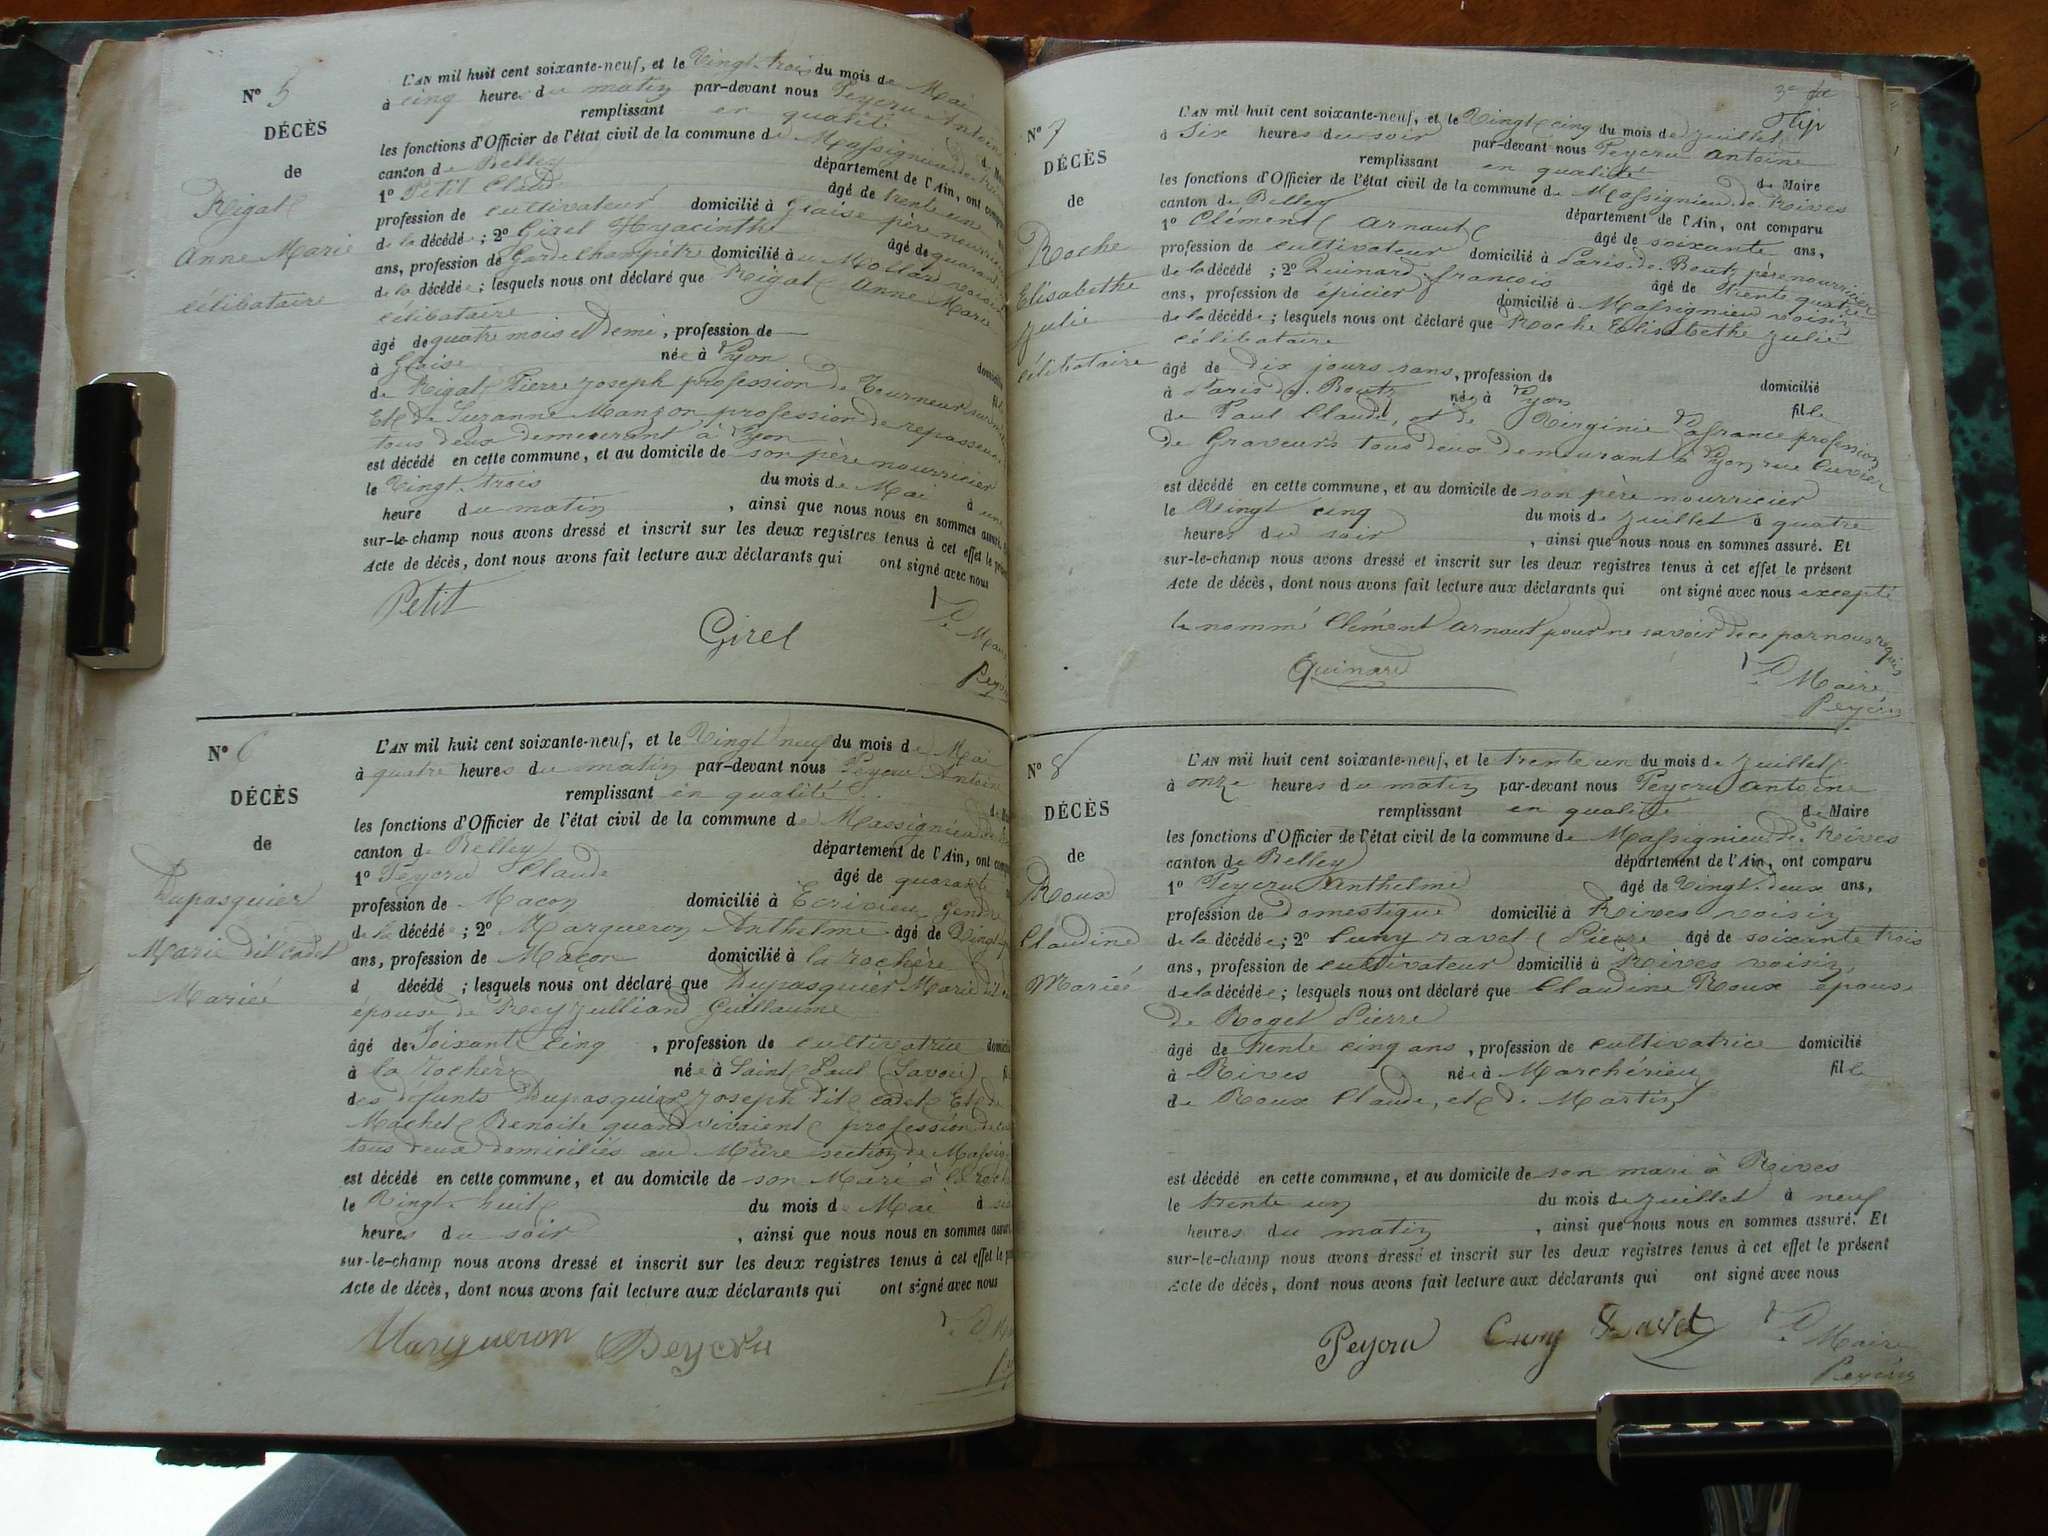 N° 5
DÉCÈS
de
Rigat
Anne Marie
célibataire
L'AN mil huit cent soixante-neuf, et le Vingt trois du mois de Mai
à cinq heures du matin par-devant nous Peycru Antoine
remplissant en qualité de
les fonctions d'Officier de l'état civil de la commune de Massignieu de Rives
canton de Belley département de l'Ain, ont
1° Petit Claude âgé de trente un
profession de cultivateur domicilié à Glaise père nourricier
de la décédée ; 2° Girel Hyacinthe âgé de quarante
ans, profession de Garde champêtre domicilié au Mollard voisin
de la décédée ; lesquels nous ont déclaré que Rigat Anne Marie
célibataire
âgé de quatre mois et demi, profession de
à Glaise née à Lyon
de Rigat Pierre Joseph profession de Tourneur
Et de Suzanne Manzon profession de repasseuse
tous deux demeurant à Lyon
est décédé en cette commune, et au domicile de son père nourricier
le Vingt trois du mois de Mai à une
heure du matin , ainsi que nous nous en sommes assuré.
sur-le-champ nous avons dressé et inscrit sur les deux registres tenus à cet effet le
Acte de décès, dont nous avons fait lecture aux déclarants qui ont signé avec nous
Petit
Girel
Le Maire
N° 6
DÉCÈS
de
Dupasquier
Marie dit cadet
Mariée
L'AN mil huit cent soixante-neuf, et le Vingt neuf du mois de Mai
à quatre heures du matin par-devant nous Peycru Antoine
remplissant en qualité
les fonctions d'Officier de l'état civil de la commune de Massignieu de
canton de Belley département de l'Ain, ont
1° Peycru Claude âgé de quarante
profession de Maçon domicilié à Ecrivieu gendre
de la décédée ; 2° Margueron Anthelme âgé de Vingt
ans, profession de Maçon domicilié à la rochère
d décédé ; lesquels nous ont déclaré que Dupasquier Marie dit
épouse de Rey Julliand Guillaume
âgé de Soixante Cinq , profession de cultivatrice
à la Rochère née à Saint Paul (Savoie)
des défunts Dupasquier Joseph dit cadet Et de
Machet Benoite quand vivaient profession de
tous deux domiciliés au Mûre section de
est décédé en cette commune, et au domicile de son Mari à la
le Vingt huit du mois de Mai à
heures du soir , ainsi que nous nous en sommes
sur-le-champ nous avons dressé et inscrit sur les deux registres tenus à cet effet le
Acte de décès, dont nous avons fait lecture aux déclarants qui ont signé avec nous
Margueron Peycru
N° 7
DÉCÈS
de
Roche
Elisabethe
Julie
célibataire
L'AN mil huit cent soixante-neuf, et le Vingt cinq du mois de Juillet
à Six heures du soir par-devant nous Peycru Antoine
remplissant en qualité de Maire
les fonctions d'Officier de l'état civil de la commune de Massignieu de Rives
canton de Belley département de l'Ain, ont comparu
1° Clément Arnaut âgé de soixante ans,
profession de cultivateur domicilié à Paris de Boutz père nourricier
de la décédé ; 2° Quinard françois âgé de trente quatre
ans, profession de épicier domicilié à Massignieu voisin
de la décédée ; lesquels nous ont déclaré que Roche Elisabethe Julie
célibataire
âgé de dix jours sans, profession de domicilié
à Paris de Boutz née à Lyon fille
de Paul Claude, et de Virginie Lafrance profession
de Graveurs tous deux demeurant à Lyon rue Cuvier
est décédé en cette commune, et au domicile de son père nourricier
le Vingt cinq du mois de Juillet à quatre
heures du soir , ainsi que nous nous en sommes assuré. Et
sur-le-champ nous avons dressé et inscrit sur les deux registres tenus à cet effet le présent
Acte de décès, dont nous avons fait lecture aux déclarants qui ont signé avec nous excepté
le nommé Clément Arnaut pour ne savoir de ce par nous requis
Quinard
Le Maire
Peycru
N° 8
DÉCÈS
de
Roux
Claudine
Mariée
L'AN mil huit cent soixante-neuf, et le trente un du mois de Juillet
à onze heures du matin par-devant nous Peycru Antoine
remplissant en qualité de Maire
les fonctions d'Officier de l'état civil de la commune de Massignieu de Rives
canton de Belley département de l'Ain, ont comparu
1° Peycru Anthelme âgé de Vingt deux ans,
profession de domestique domicilié à Rives voisin
de la décédée ; 2° Cuny ravet Pierre âgé de soixante trois
ans, profession de cultivateur domicilié à Rives voisin
de la décédée ; lesquels nous ont déclaré que Claudine Roux épouse
de Roget Pierre
âgé de trente cinq ans, profession de cultivatrice domicilié
à Rives née à Marchérieu fille
de Roux Claude, et de Martin
est décédé en cette commune, et au domicile de son mari à Rives
le trente un du mois de Juillet à neuf
heures du matin , ainsi que nous nous en sommes assuré. Et
sur-le-champ nous avons dressé et inscrit sur les deux registres tenus à cet effet le présent
Acte de décès, dont nous avons fait lecture aux déclarants qui ont signé avec nous
Peycru Cuny Ravet
Le Maire
Peycru